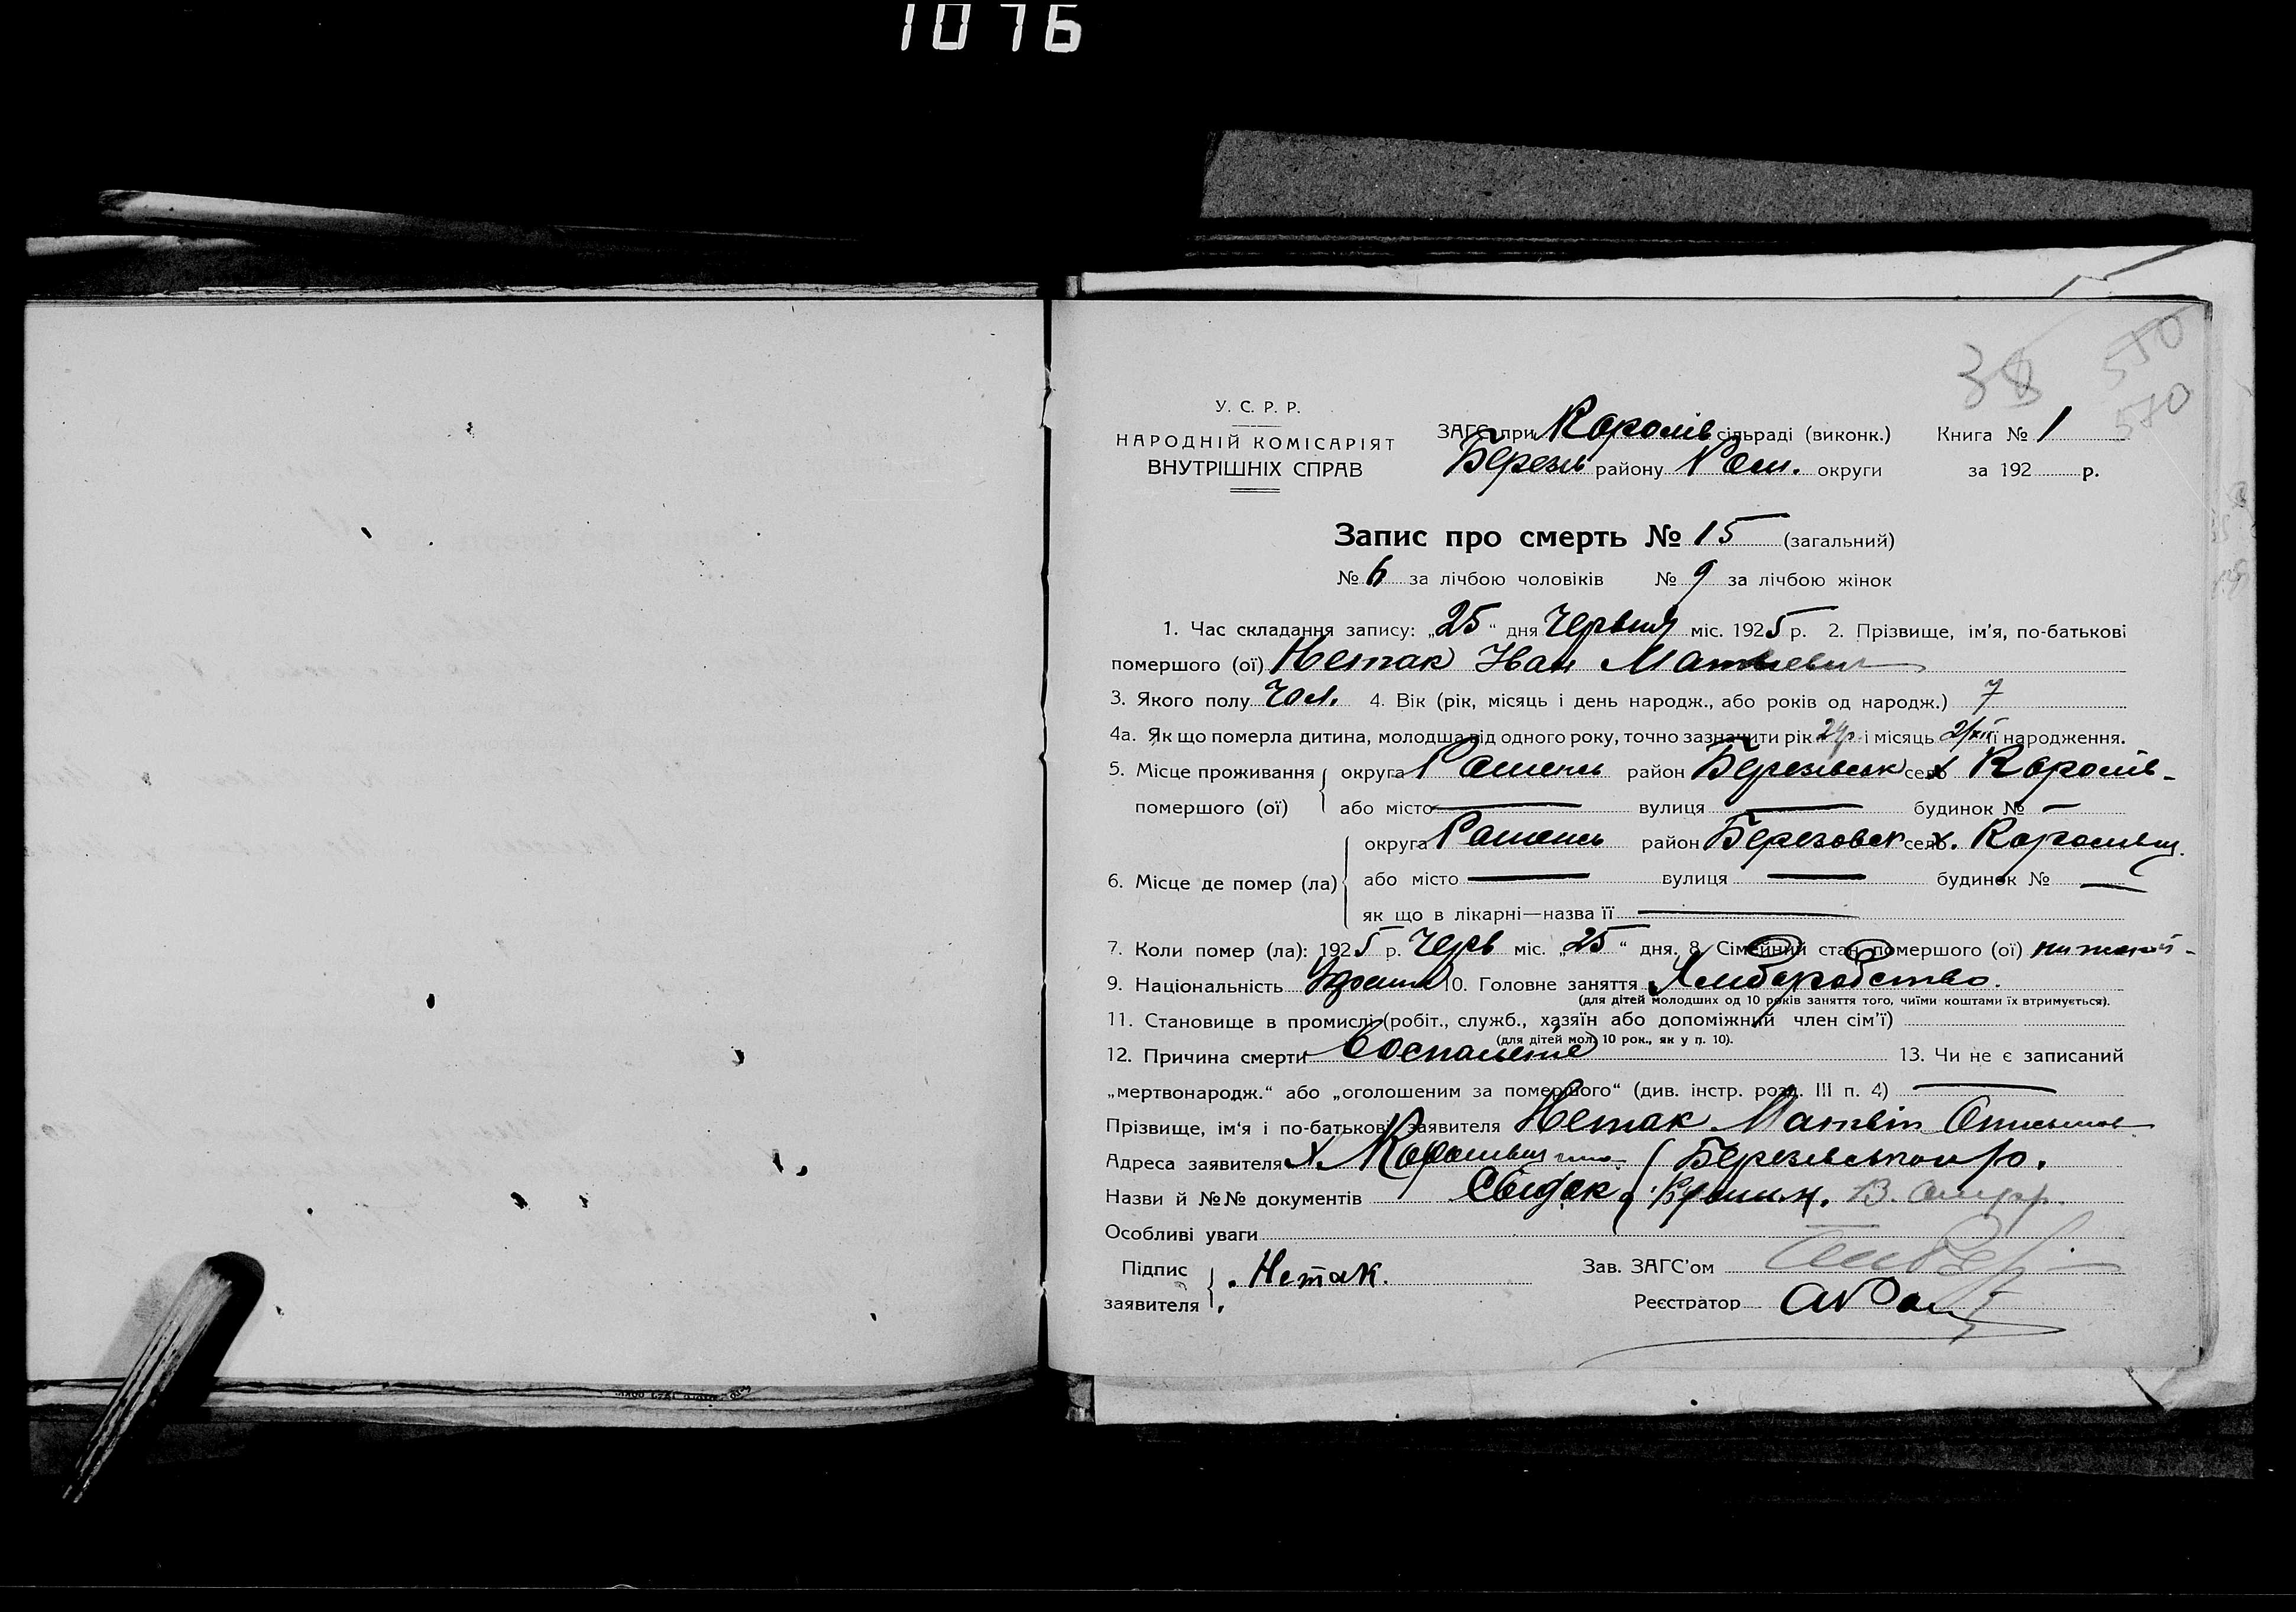 1076
38
550
580
У. С. Р. Р.
НАРОДНІЙ КОМІСАРІЯТ
ВНУТРІШНІХ СПРАВ
ЗАГС при Королів сільраді (виконк.) Книга № 1
Березів району Ром. округи за 192 р.
Запис про смерть № 15 (загальний)
№ 6 за лічбою чоловіків № 9 за лічбою жінок
1. Час складання запису: „25“ дня Червня міс. 1925 р. 2. Прізвище, ім'я, по-батькові
помершого (ої) Нетак Іван Матвієвич
3. Якого полу Чол. 4. Вік (рік, місяць і день народж., або років од народж.) 7
4а. Як що померла дитина, молодша від одного року, точно зазначити рік 24р. і місяць 2/XII її народження.
5. Місце проживання округа Роменсь район Березівськ село х Королів-
помершого (ої) або місто — вулиця — будинок № —
округа Роменсь район Березовск село х. Королівщ.
6. Місце де помер (ла) або місто — вулиця — будинок № —
як що в лікарні—назва її —
7. Коли помер (ла): 1925 р. Черв міс. „25“ дня. 8. Сімейний стан помершого (ої)
9. Національність 10. Головне заняття Хліборобство.
(для дітей молодших од 10 років заняття того, чиїми коштами їх втримується).
11. Становище в промислі (робіт., служб., хазяїн або допоміжний член сім'ї)
(для дітей мол. 10 рок., як у п. 10).
12. Причина смерти Воспаленіе 13. Чи не є записаний
„мертвонародж.“ або „оголошеним за помершого“ (див. інстр. розд. III п. 4) —
Прізвище, ім'я і по-батькові заявителя Нетак Матвій
Адреса заявителя х. Королівщ Березівського р.
Назви й №№ документів
Особливі уваги
Підпис Нетак. Зав. ЗАГС'ом
заявителя Реєстратор